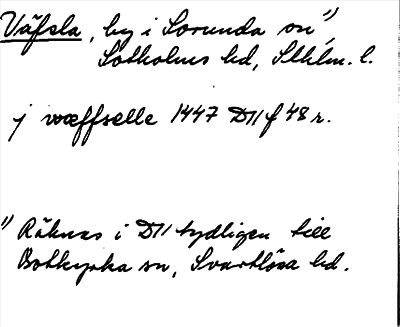 Väfsla, by i Sorunda sn 1),
Sotholms hd, Sthlm. l.
j wæffselle 1447 D11 f 48 r.
1) Räknas i D11 tydligen till
Botkyrka sn, Svartlösa hd.